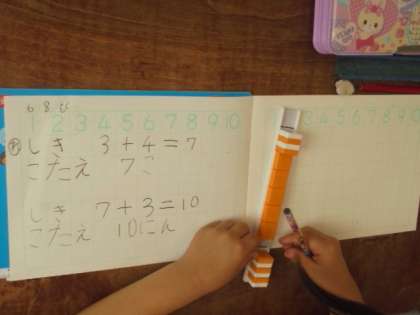 6 8 び
1 2 3 4 5 6 7 8 9 10
3 4 5 6 7 8 9 10
しき 3+4=7
こたえ 7こ
しき 7+3=10
こたえ 10にん